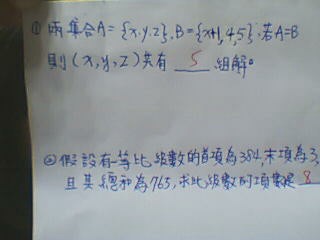 ① 兩集合A={x,y,z},B={x+1,4,5},若A=B
則(x,y,z)共有 5 組解。
② 假設有一等比級數的首項為384,末項為3,
且其總和為765,求此級數的項數是 8